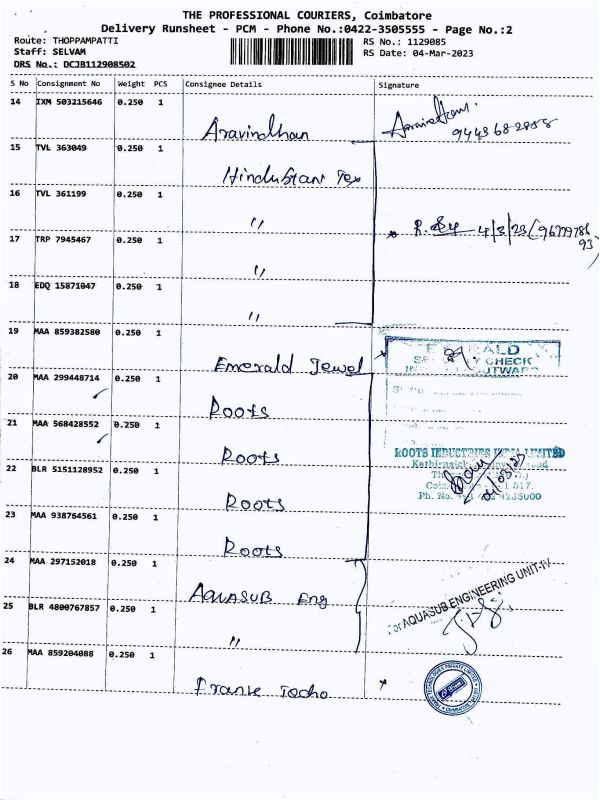 THE PROFESSIONAL COURIERS, Coimbatore
Delivery Runsheet - PCM - Phone No.:0422-3505555 - Page No.:2
Route: THOPPAMPATTI
RS No.: 1129085
Staff: SELVAM
RS Date: 04-Mar-2023
DRS No.: DCJB112908502
S No Consignment No Weight PCS Consignee Details Signature
14 IXM 503215646 0.250 1 Aravindhan
15 TVL 363049 0.250 1 Hindustan Tex
16 TVL 361199 0.250 1 "
4/3/23
17 TRP 7945467 0.250 1 "
18 EDQ 15871047 0.250 1 "
19 MAA 859382580 0.250 1 Emerald Jewel
CHECK
20 MAA 299448714 0.250 1 Roots
21 MAA 568428552 0.250 1 Roots
ROOTS INDUSTRIES INDIA LIMITED
22 BLR 5151128952 0.250 1 Roots
04/03/23
Ph. No.
23 MAA 938764561 0.250 1 Roots
24 MAA 297152018 0.250 1 Aquasub Eng
For AQUASUB ENGINEERING UNIT-IV
25 BLR 4800767857 0.250 1 "
26 MAA 859204088 0.250 1